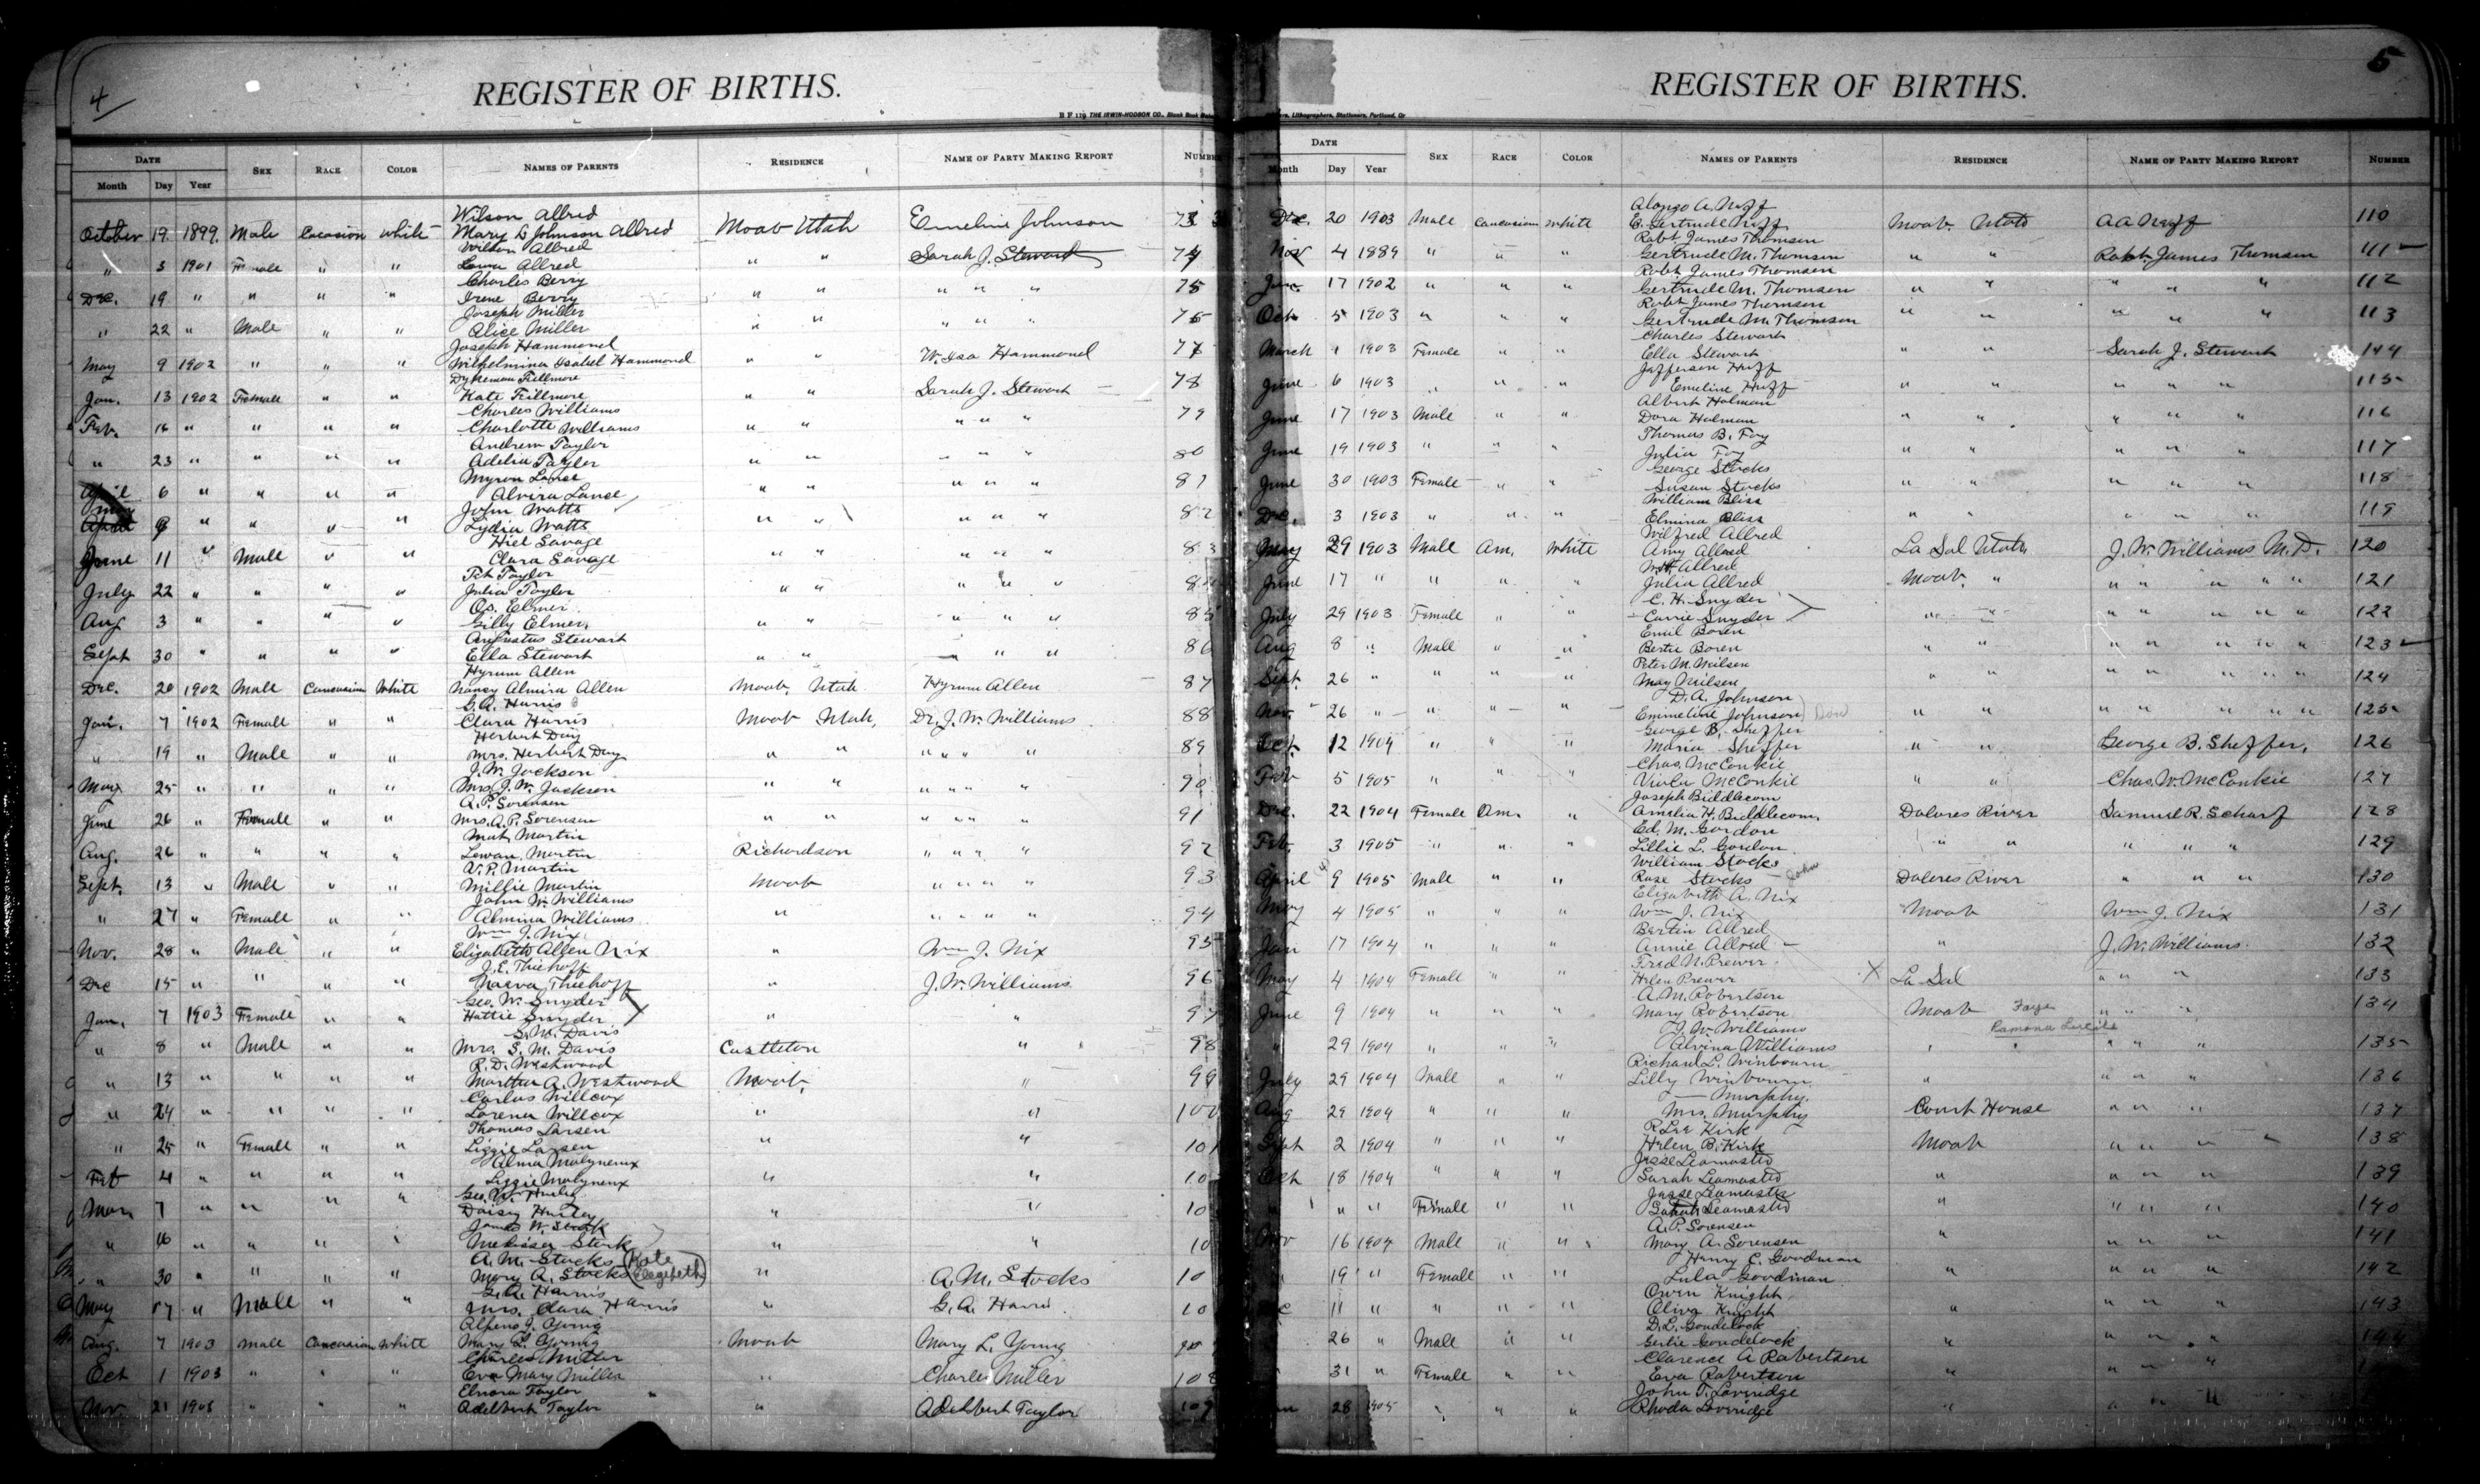 4
REGISTER OF BIRTHS.
B F 119 THE IRWIN-HODSON CO., Blank Book
DATE
Month Day Year SEX RACE COLOR NAMES OF PARENTS RESIDENCE NAME OF PARTY MAKING REPORT NUMBER
Wilson Allred
October 19 1899 Male Cacasion white Mary D Johnson Allred Moab Utah Emeline Johnson 73
Wilson Allred
" 3 1901 Female " " Allred " " Sarah J. Stewart 74
Charles Berry
Dec. 19 " " " " Irene Berry " " " " " 75
Joseph Miller
" 22 " Male " " Alice Miller " " " " " 76
Joseph Hammond
May 9 1902 " " " Wilhelmina Isabel Hammond " " W. Isa Hammond 77
Dykeman Fillmore
Jan. 13 1902 Female " " Kate Fillmore " " Sarah J. Stewart 78
Charles Williams
Feb. 16 " " " " Charlotte Williams " " " " " 79
Andrew Taylor
" 23 " " " " Adelia Taylor " " " " " 80
Myron Lance
April 6 " " " " Alvira Lance " " " " " 81
John Watts
May 9 " " " " Lydia Watts " " " " " 82
Hiel Savage
June 11 " Male " " Clara Savage " " " " " 83
Taylor
July 22 " " " " Julia Taylor " " " " " 84
Os. Elmer
Aug 3 " " " " Gilly Elmer " " " " " 85
Augustus Stewart
Sept 30 " " " " Ella Stewart " " " " " 86
Hyrum Allen
Dec. 20 1902 Male Caucasian White Nancy Almira Allen Moab, Utah Hyrum Allen 87
G. A. Harris
Jan. 7 1902 Female " " Clara Harris Moab Utah, Dr. J. W. Williams 88
Herbert Day
" 19 " Male " " Mrs. Herbert Day " " " " " " 89
J. W. Jackson
May 25 " " " " Mrs. J. W. Jackson " " " " " " 90
A. P. Sorensen
June 26 " Female " " Mrs. A. P. Sorensen " " " " " " 91
Mat Martin
Aug. 26 " " " " Martin Richardson " " " " 92
V. P. Martin
Sept. 13 " Male " " Millie Martin Moab " " " " 93
John W. Williams
" 27 " Female " " Almina Williams " " " " " 94
Wm J. Nix
Nov. 28 " Male " " Elizabeth Allen Nix " Wm J. Nix 95
J. E. Thiehoff
Dec 15 " " " " Thiehoff " J. W. Williams 96
Geo. W. Snyder
Jan. 7 1903 Female " " Hattie Snyder " " 97
S. M. Davis
" 8 " Male " " Mrs. S. M. Davis Castleton " 98
R. D. Westwood
" 13 " " " " Martha A. Westwood Moab, " 99
Carlos Willcox
" 24 " " " " Lorena Willcox " " 100
Thomas Larsen
" 25 " Female " " Lizzie Larsen " " 101
Alma Molyneux
Feb 4 " " " " Lizzie Molyneux " " 10
Geo. W. Hurley
Mar. 7 " " " " Daisy Hurley " " 10
James W. Stark
" 16 " " " " Melissa Stark " " 10
A. M. Stocks (Kate
" 30 " " " " Mary A. Stocks Elizabeth) " A. M. Stocks 10
G. A. Harris
May 17 " Male " " Mrs. Clara Harris " G. A. Harris 10
Alpens J. Young
Aug. 7 1903 Male Caucasian White Mary L. Young Moab Mary L. Young
Charles Miller
Oct 1 1903 " " " Eva Mary Miller " Charles Miller 108
Elnora Taylor
Nov. 21 1903 " " " Adelbert Taylor " Adelbert Taylor 109
5
REGISTER OF BIRTHS.
Lithographers, Stationers, Portland, Or
DATE
Month Day Year SEX RACE COLOR NAMES OF PARENTS RESIDENCE NAME OF PARTY MAKING REPORT NUMBER
Alonzo A. Neff
Dec. 20 1903 Male Caucasian White E. Gertrude Neff Moab, Utah A A Neff 110
Robt. James Thomson
Nov 4 1889 " " " Gertrude M. Thomson " " Robt. James Thomson 111
Robt James Thomson
Jan. 17 1902 " " " Gertrude M. Thomson " " " " " 112
Robt James Thomson
Oct 5 1903 " " " Gertrude M. Thomson " " " " " 113
Charles Stewart
March 1 1903 Female " " Ella Stewart " " Sarah J. Stewart 144
Jefferson Huff
June 6 1903 " " " Emeline Huff " " " " " 115
Albert Holman
June 17 1903 Male " " Dora Holman " " " " " 116
Thomas B. Foy
June 19 1903 " " " Julia Foy " " " " " 117
George Stocks
June 30 1903 Female " " Susan Stocks " " " " " 118
William Bliss
Dec. 3 1903 " " " Elmina Bliss " " " " " 119
Wilfred Allred
May 29 1903 Male Am. White Amy Allred La Sal Utah J. W. Williams M. D. 120
Allred
June 17 " " " " Julia Allred Moab, " " " " " " 121
C. H. Snyder
July 29 1903 Female " " Carrie Snyder " " " " " " " 122
Emil Boren
Aug 8 " Male " " Bertie Boren " " " " " " " 123
Peter M. Neilsen
Sept. 26 " " " " May Neilsen " " " " " " " 124
D. A. Johnson
Nov. 26 " " " " Emmeline Johnson " " " " " " " 125
George B. Sheffer
Oct. 12 1904 " " " Maria Sheffer " " George B. Sheffer, 126
Chas. McConkie
Feb 5 1905 " " " Viola McConkie " " Chas. W. McConkie 127
Joseph Biddlecom
Dec. 22 1904 Female Am. " Amelia H. Biddlecom, Dolores River Samuel R. Scharf 128
Ed. M. Gordon
Feb. 3 1905 " " " Lillie L. Gordon " " " " " 129
William Stocks
April 9 1905 Male " " Rose Stocks John Dolores River " " " 130
Elizabeth A. Nix
May 4 1905 " " " Wm J. Nix Moab Wm J. Nix 131
Bertin Allred
Jan 17 1904 " " " Annie Allred " J. W. Williams 132
Fred N. Prewer
May 4 1904 Female " " Helen Prewer X La Sal " " " 133
A. M. Robertson
June 9 1904 " " " Mary Robertson Moab Faye " " " 134
Ramona Lucile
J. W. Williams
" 29 1904 " " " Alvina Williams " " " " " 135
Richard L. Winbourn
July 29 1904 Male " " Lilly Winbourn " " " " 136
— Murphy
Aug 29 1904 " " " Mrs. Murphy Court House " " " 137
R Lee Kirk
Sept 2 1904 " " " Helen B. Kirk Moab " " " " 138
Jesse Leamaster
Oct 18 1904 " " " Sarah Leamaster " " " " 139
Jesse Leamaster
" " " Female " " Sarah Leamaster " " " " 140
A. P. Sorensen
Nov 16 1904 Male " " Mary A. Sorensen " " " " 141
Henry C. Goodman
" 19 " Female " " Lula Goodman " " " " 142
Owen Knight
Dec 11 " " " " Oliva Knight " " " " 143
D. L. Goudelock
26 " Male " " Goudelock " " " " 144
Clarence A Robertson
" 31 " Female " " Eva Robertson " " " "
John T. Loveridge
28 1905 " " " Rhoda Loveridge " " " "